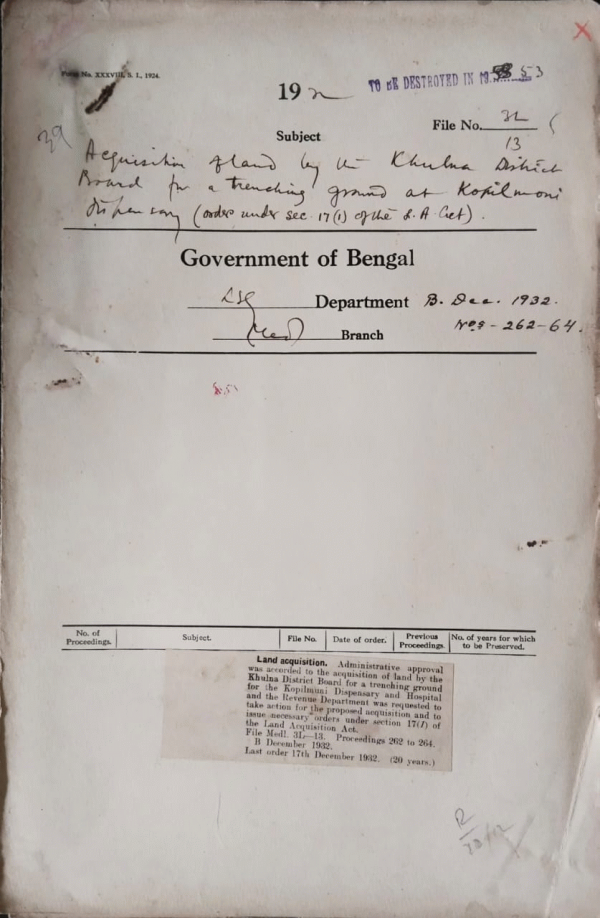 Form No. XXXVIII, S. I., 1924.
TO BE DESTROYED IN 19 53
1932
File No. 3L
13
Subject
Acquisition of land by the Khulna District
Board for a trenching ground at Kopilmoni
dispensary (orders under sec. 17(1) of the L. A. Act).
Government of Bengal
LSG Department B. Dec. 1932.
Medl Branch Nos - 262-64.
No. of Proceedings. Subject. File No. Date of order. Previous Proceedings. No. of years for which to be Preserved.
Land acquisition. Administrative approval
was accorded to the acquisition of land by the
Khulna District Board for a trenching ground
for the Kopilmuni Dispensary and Hospital
and the Revenue Department was requested to
take action for the proposed acquisition and to
issue necessary orders under section 17(1) of
the Land Acquisition Act.
File Medl. 3L—13. Proceedings 262 to 264.
B December 1932.
Last order 17th December 1932. (20 years.)